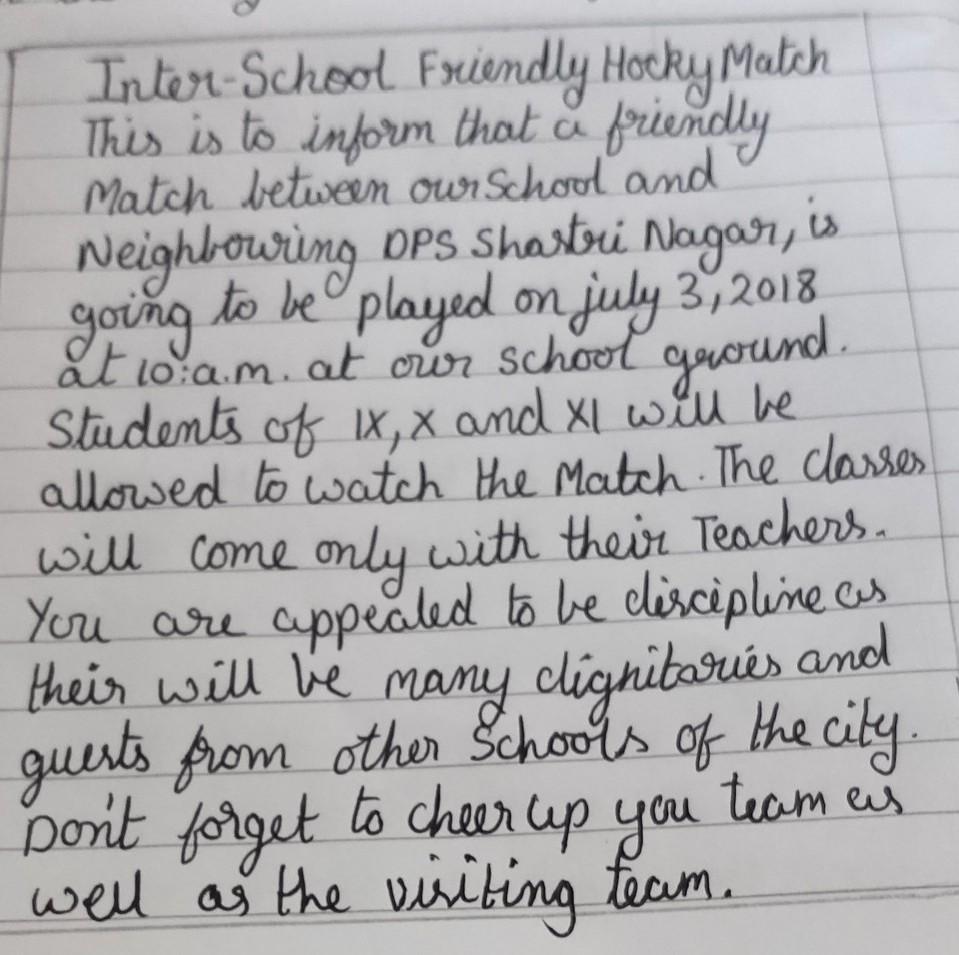 Inter-School Friendly Hocky Match
This is to inform that a friendly
Match between our School and
Neighbouring DPS Shastri Nagar, is
going to be played on july 3, 2018
at 10:a.m. at our school ground.
Students of IX, X and XI will be
allowed to watch the Match. The classes
will come only with their Teachers.
You are appealed to be discipline as
their will be many dignitaries and
guests from other Schools of the city.
Don't forget to cheer up you team as
well as the visiting team.